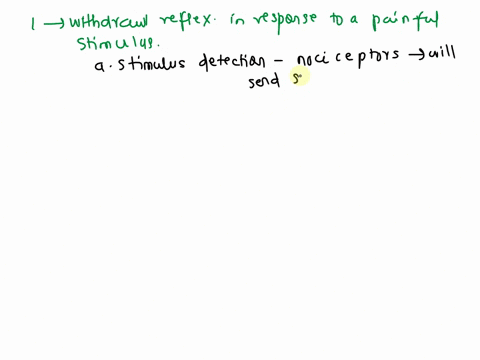 1 → withdraw reflex. in response to a painful
stimulus.
a. stimulus detection – nociceptors → will
send s